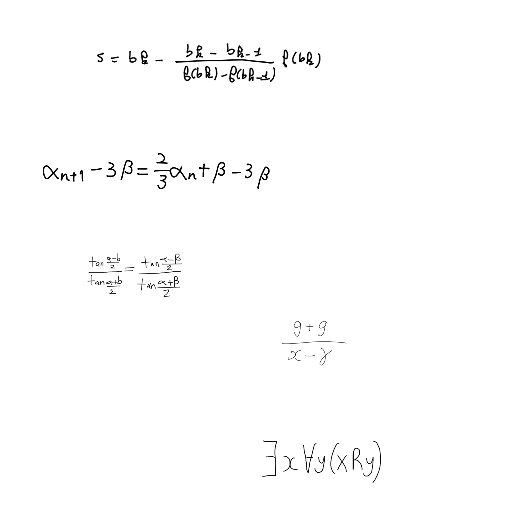 s = b_k - \frac{b_k - b_{k-1}}{f(b_k) - f(b_{k-1})} f(b_k)
\alpha_{n+1} - 3\beta = \frac{2}{3}\alpha_n + \beta - 3\beta
\frac{\tan\frac{a-b}{2}}{\tan\frac{a+b}{2}} = \frac{\tan\frac{\alpha-\beta}{2}}{\tan\frac{\alpha+\beta}{2}}
\frac{9+9}{x-\gamma}
\exists x \forall y (xRy)